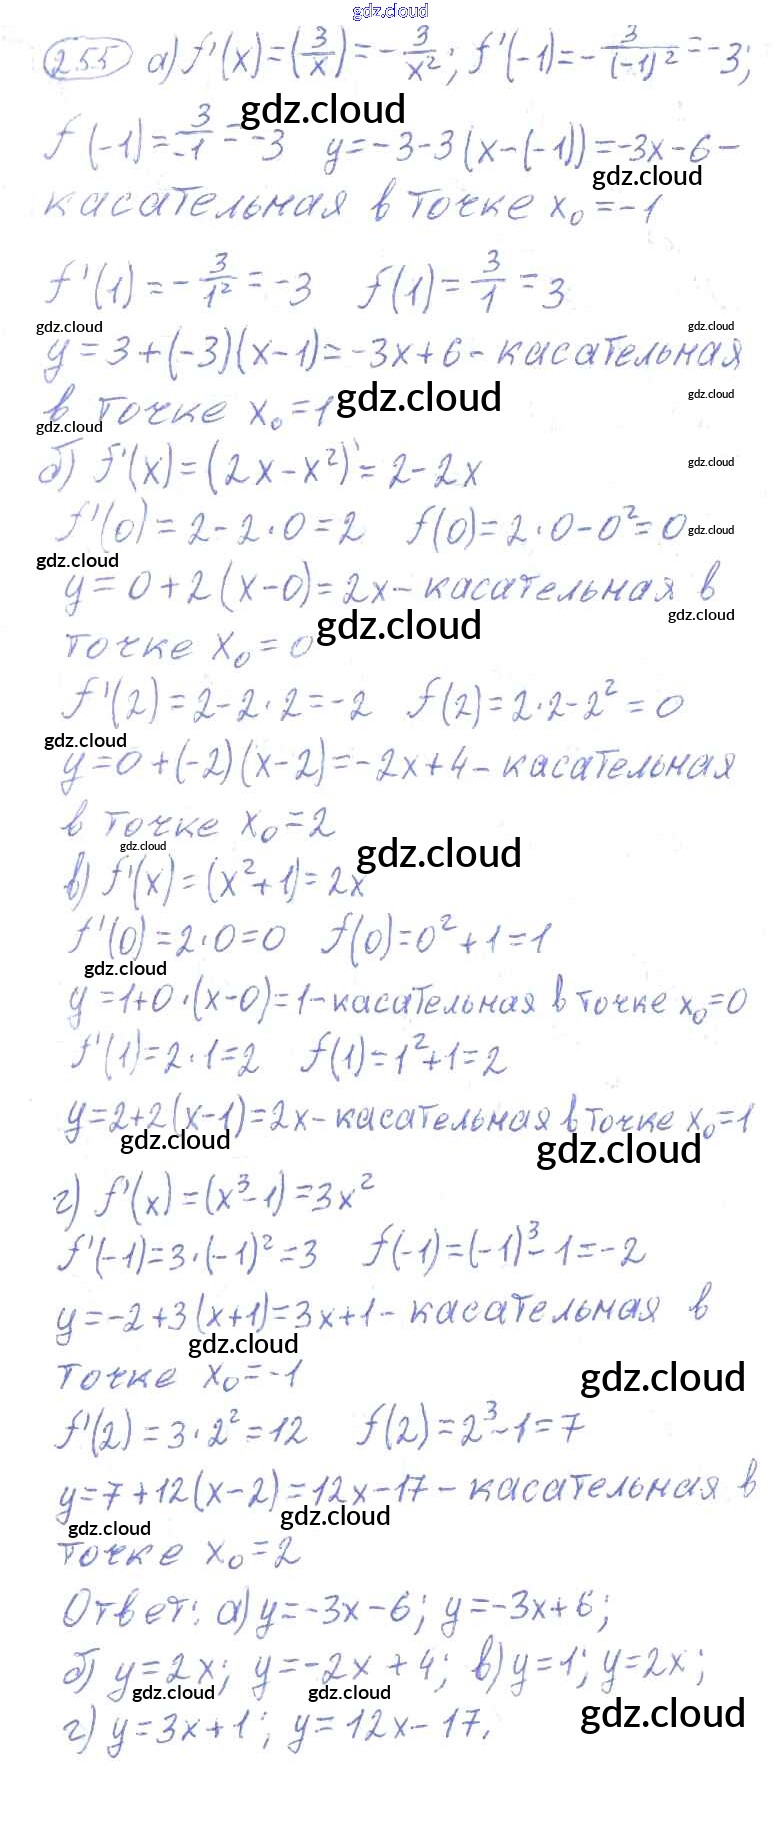 gdz.cloud
255 а) f'(x)=(3/x)=-3/x²; f'(-1)=-3/(-1)²=-3;
gdz.cloud
f(-1)=3/-1=-3 y=-3-3(x-(-1))=-3x-6-
gdz.cloud
касательная в точке x₀=-1
f'(1)=-3/1²=-3 f(1)=3/1=3
gdz.cloud gdz.cloud
y=3+(-3)(x-1)=-3x+6-касательная
gdz.cloud
в точке x₀=1 gdz.cloud
gdz.cloud
б) f'(x)=(2x-x²)'=2-2x gdz.cloud
f'(0)=2-2·0=2 f(0)=2·0-0²=0 gdz.cloud
gdz.cloud
y=0+2(x-0)=2x-касательная в
gdz.cloud
точке x₀=0 gdz.cloud
f'(2)=2-2·2=-2 f(2)=2·2-2²=0
gdz.cloud
y=0+(-2)(x-2)=-2x+4-касательная
в точке x₀=2
gdz.cloud gdz.cloud
в) f'(x)=(x²+1)=2x
f'(0)=2·0=0 f(0)=0²+1=1
gdz.cloud
y=1+0·(x-0)=1-касательная в точке x₀=0
f'(1)=2·1=2 f(1)=1²+1=2
y=2+2(x-1)=2x-касательная в точке x₀=1
gdz.cloud gdz.cloud
г) f'(x)=(x³-1)=3x²
f'(-1)=3·(-1)²=3 f(-1)=(-1)³-1=-2
y=-2+3(x+1)=3x+1-касательная в
gdz.cloud
точке x₀=-1 gdz.cloud
f'(2)=3·2²=12 f(2)=2³-1=7
y=7+12(x-2)=12x-17-касательная в
gdz.cloud gdz.cloud
точке x₀=2
Ответ: а) y=-3x-6; y=-3x+6;
б) y=2x; y=-2x+4; в) y=1; y=2x;
gdz.cloud gdz.cloud gdz.cloud
г) y=3x+1; y=12x-17.